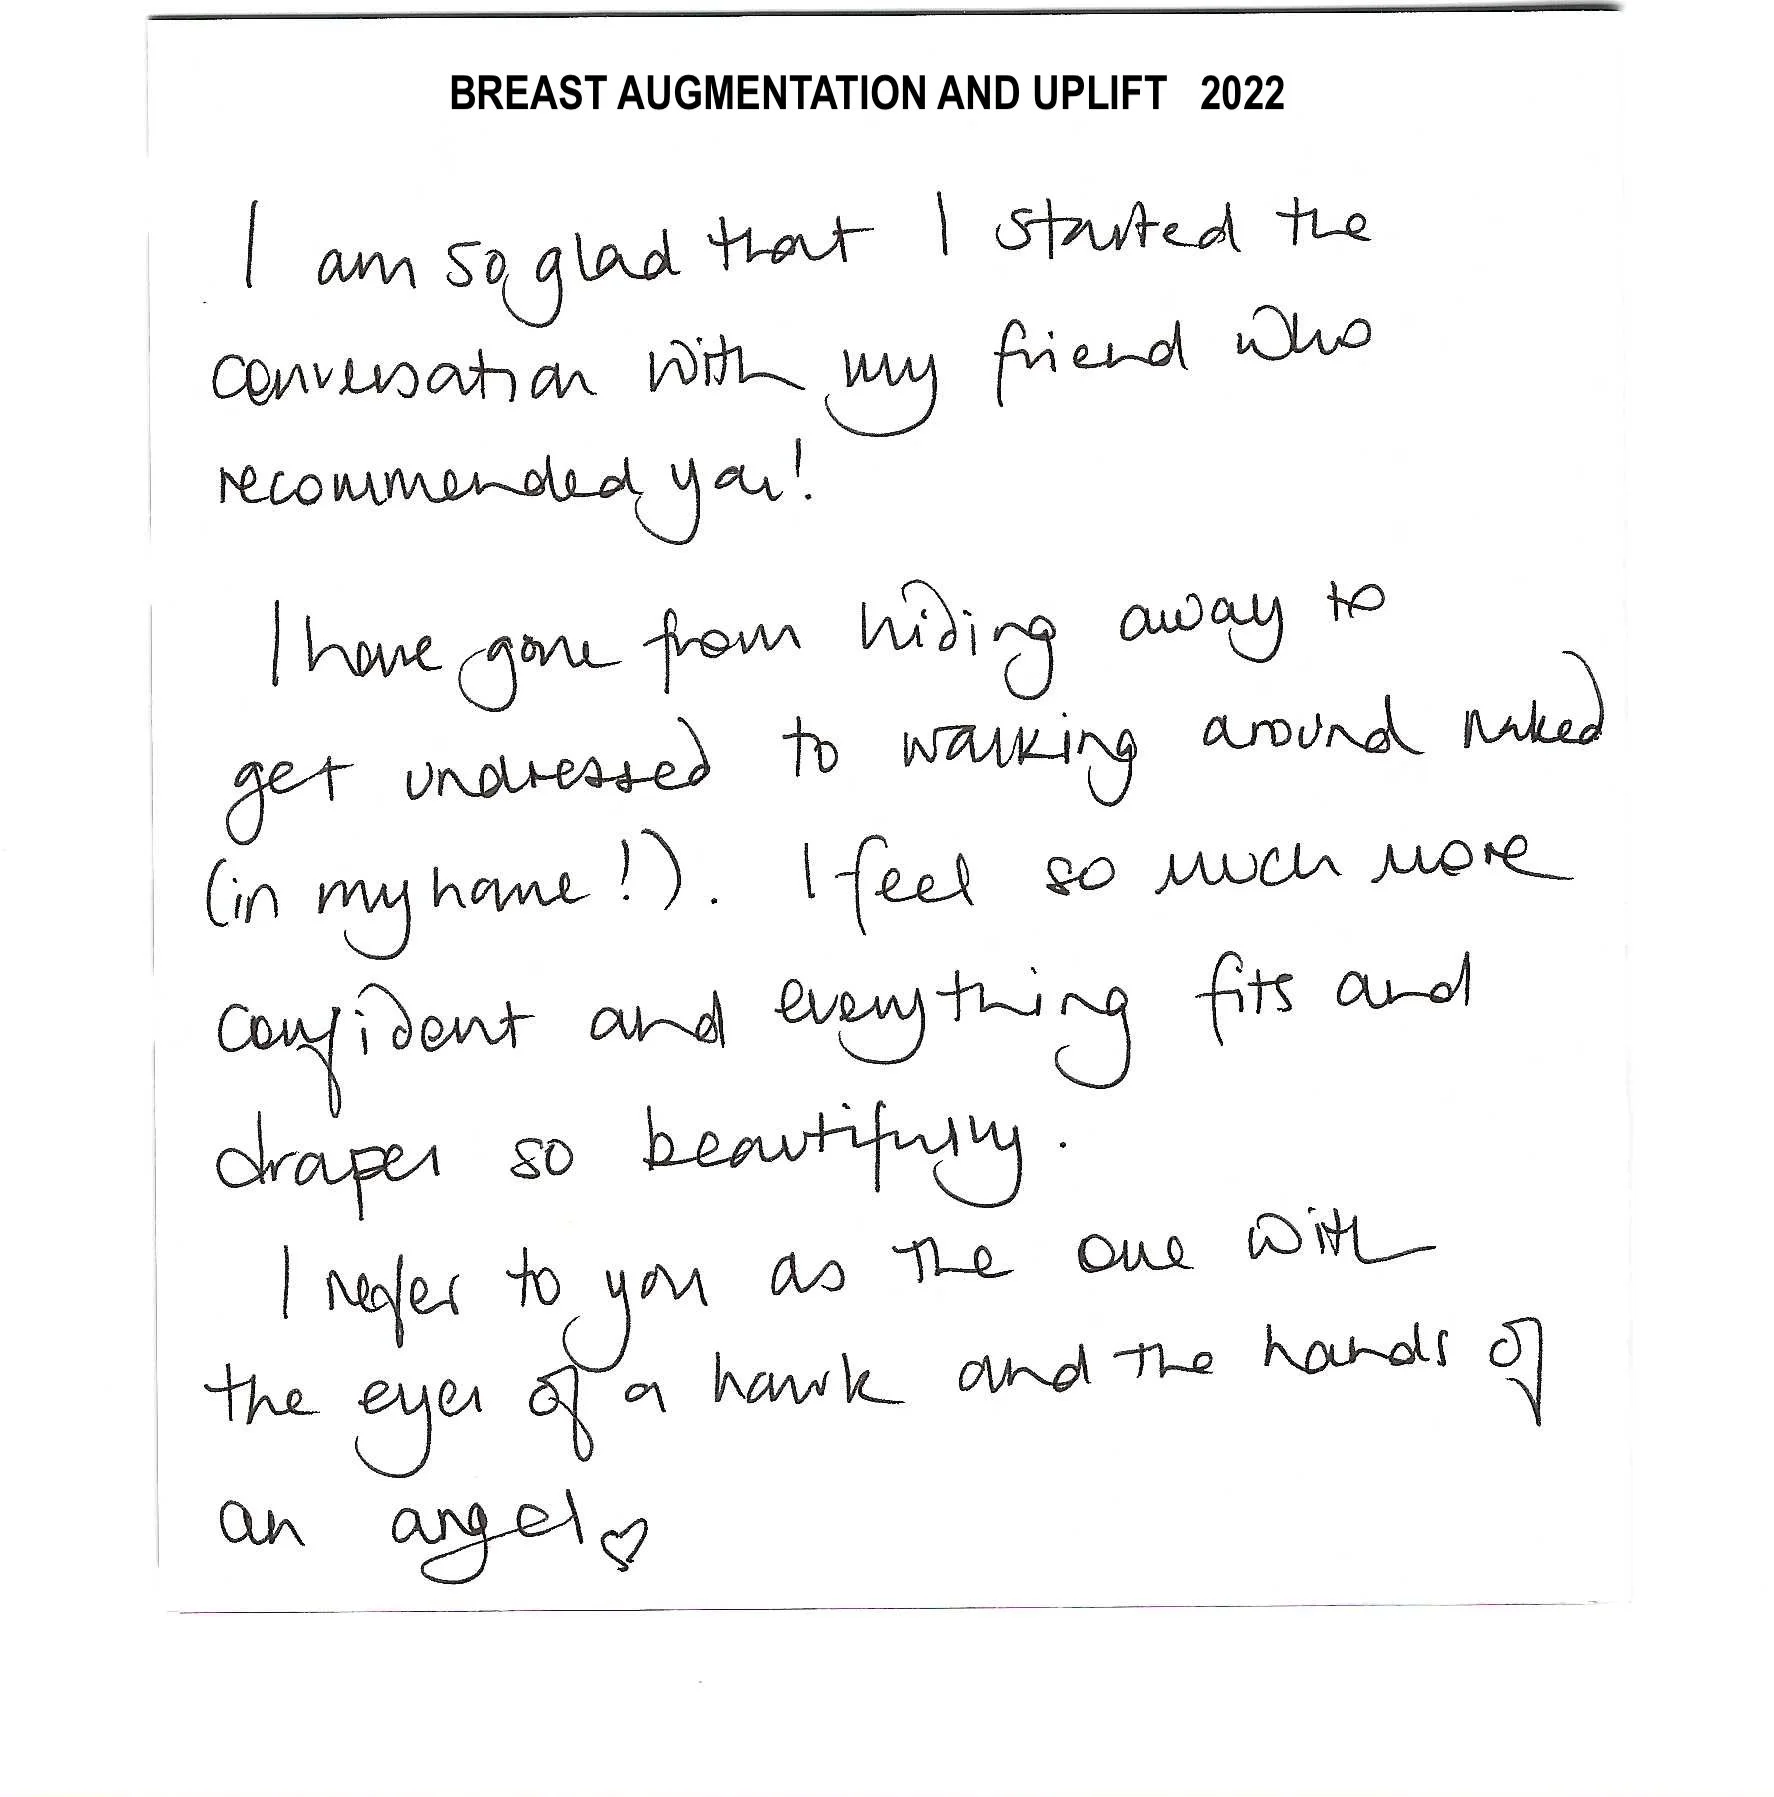 BREAST AUGMENTATION AND UPLIFT 2022
I am so glad that I started the
conversation with my friend who
recommended you!
I have gone from hiding away to
get undressed to walking around naked
(in my home!). I feel so much more
confident and everything fits and
drapes so beautifully.
I refer to you as the one with
the eyes of a hawk and the hands of
an angel♡